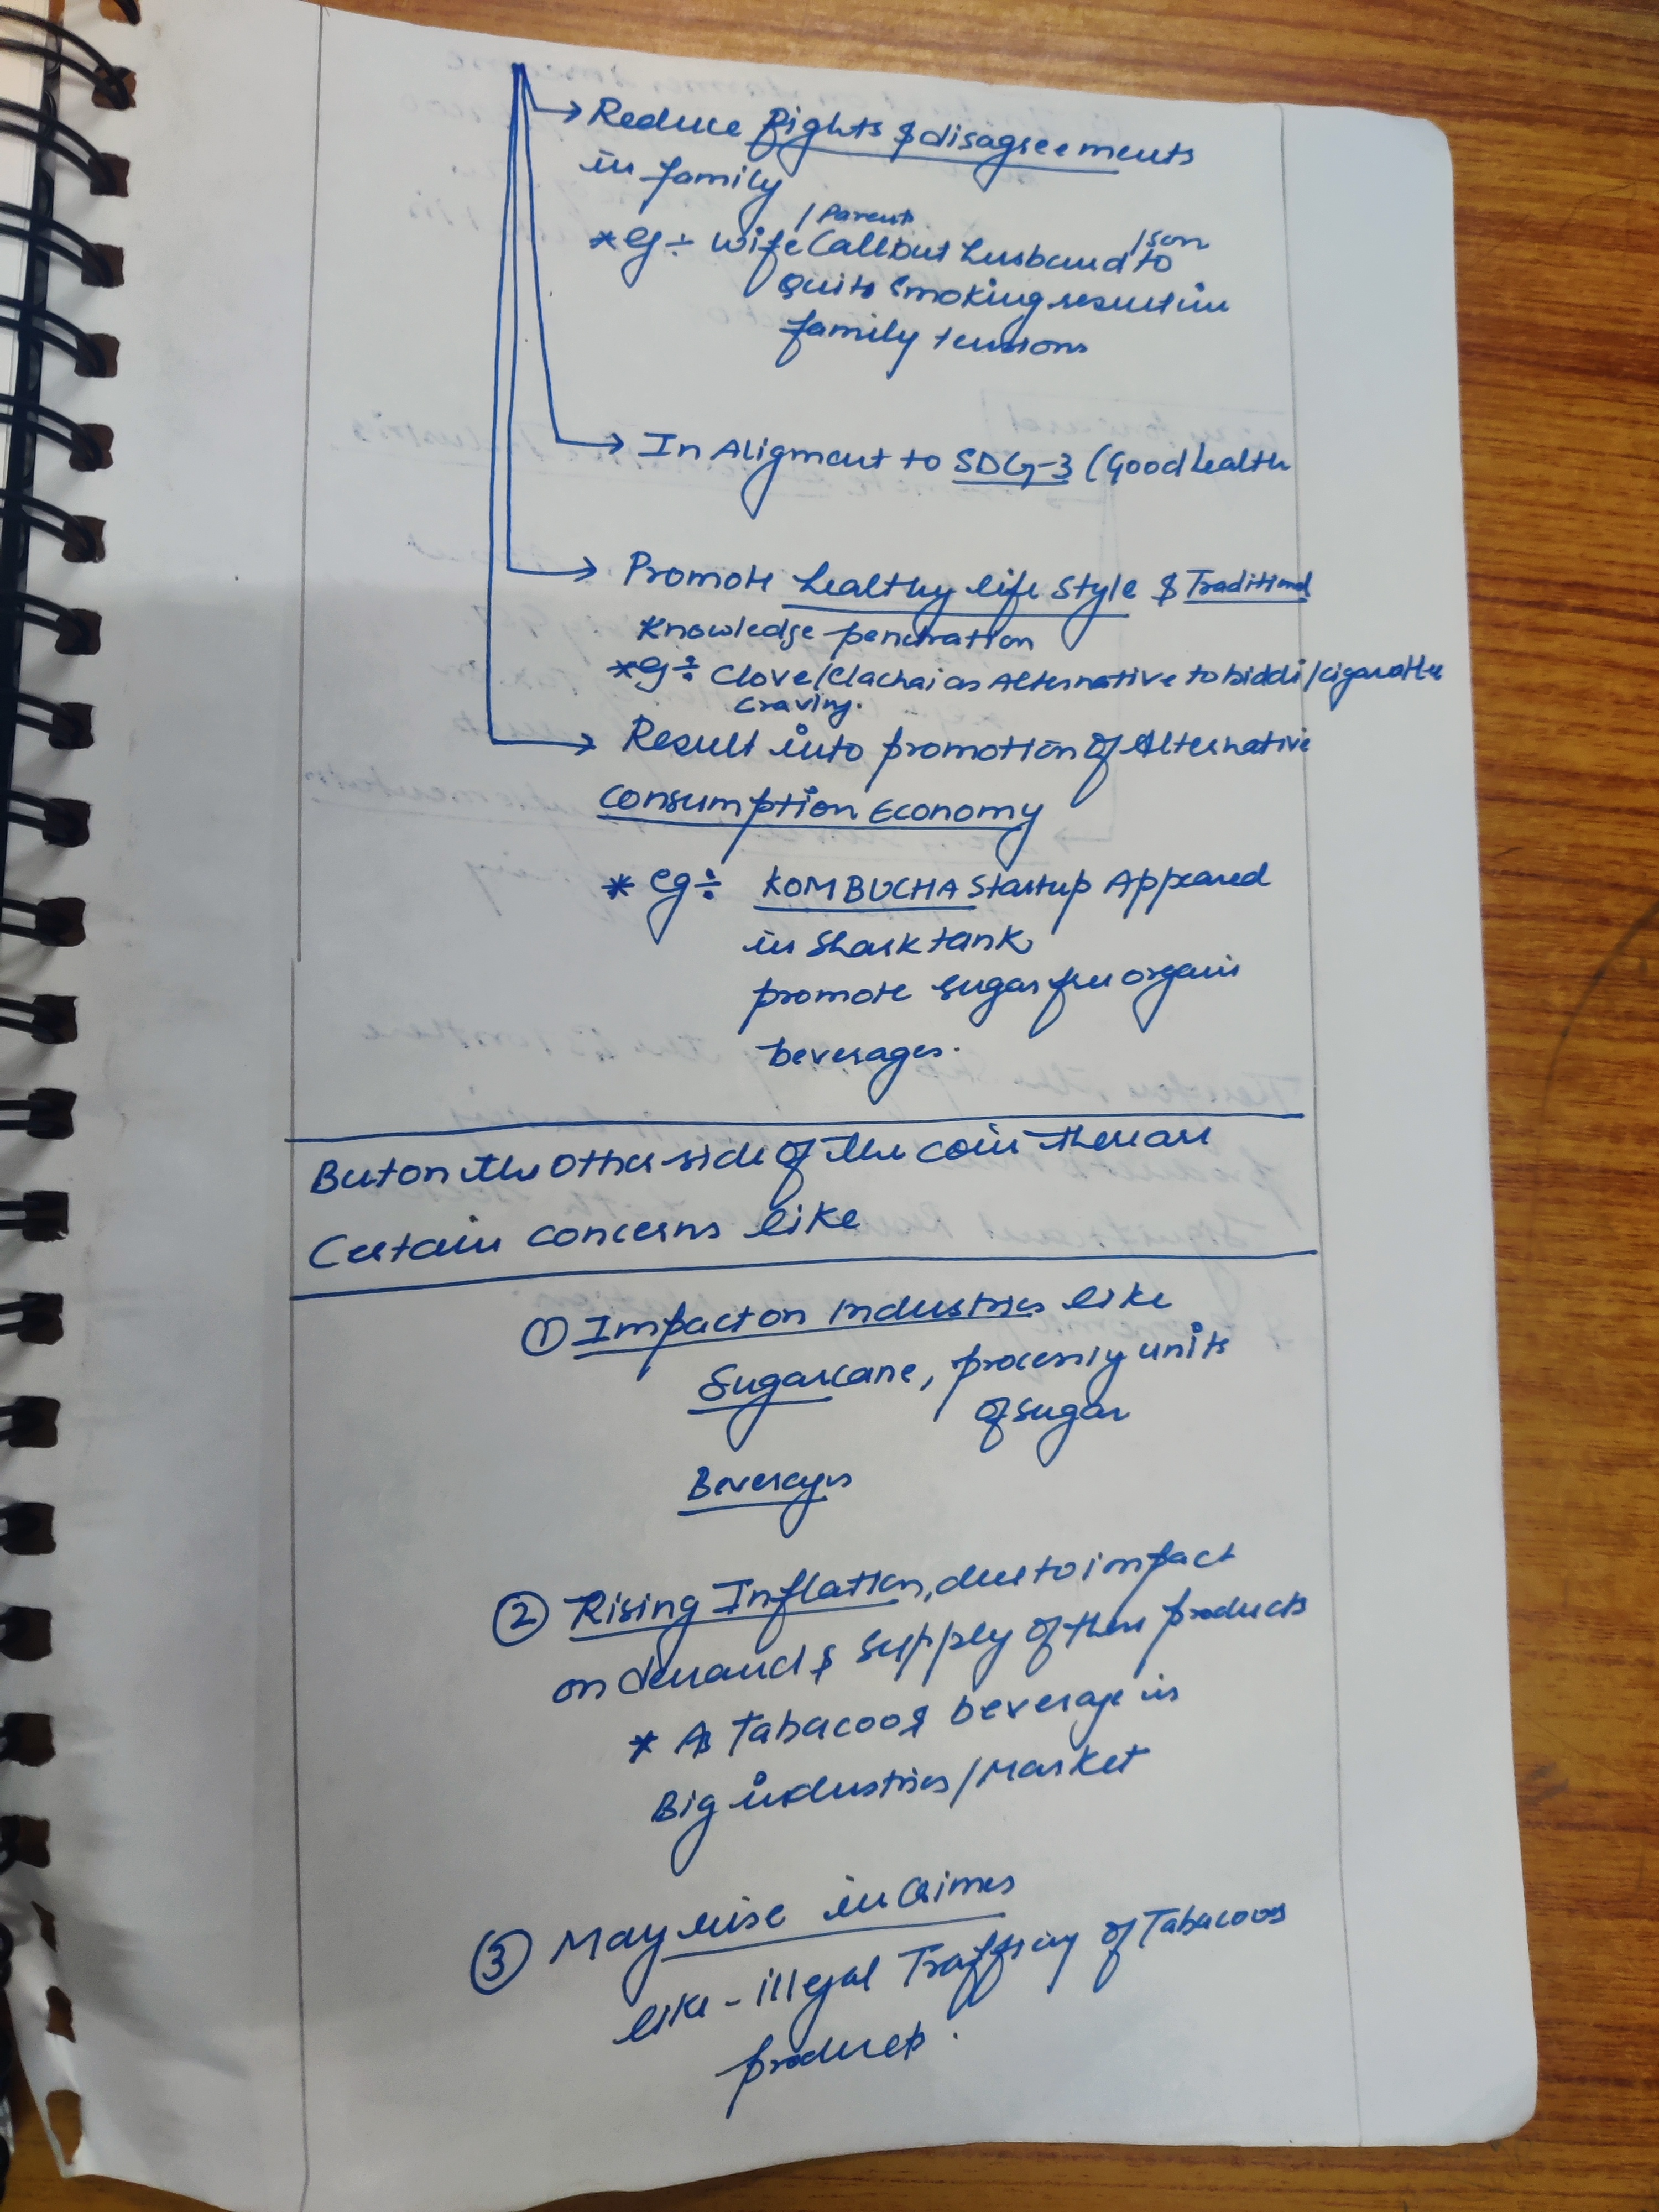 Reduce fights & disagreements
in family
/ Parents
/Son
* eg ÷ wife Callout husband to
Quits smoking result in
family tensions
In Aligment to SDG-3 (Good health
Promote healthy life style & Traditional
Knowledge penetration
* eg ÷ Clove/Elachai as Alternative to biddi/cigarattee
craving.
Result into promotion of Alternative
consumption Economy
* eg ÷ KOMBUCHA Startup Appeared
in Shark tank
promote sugar free organic
beverages.
But on the other side of the coin there are
Certain concerns like
① Impact on Industries like
Sugarcane, processing units
of sugar
Beverages
② Rising Inflation, due to impact
on demand & supply of these products
* As Tabacoo & beverage is
Big industries/Market
③ May rise in crimes
like - illegal Trafficing of Tabacoos
products.